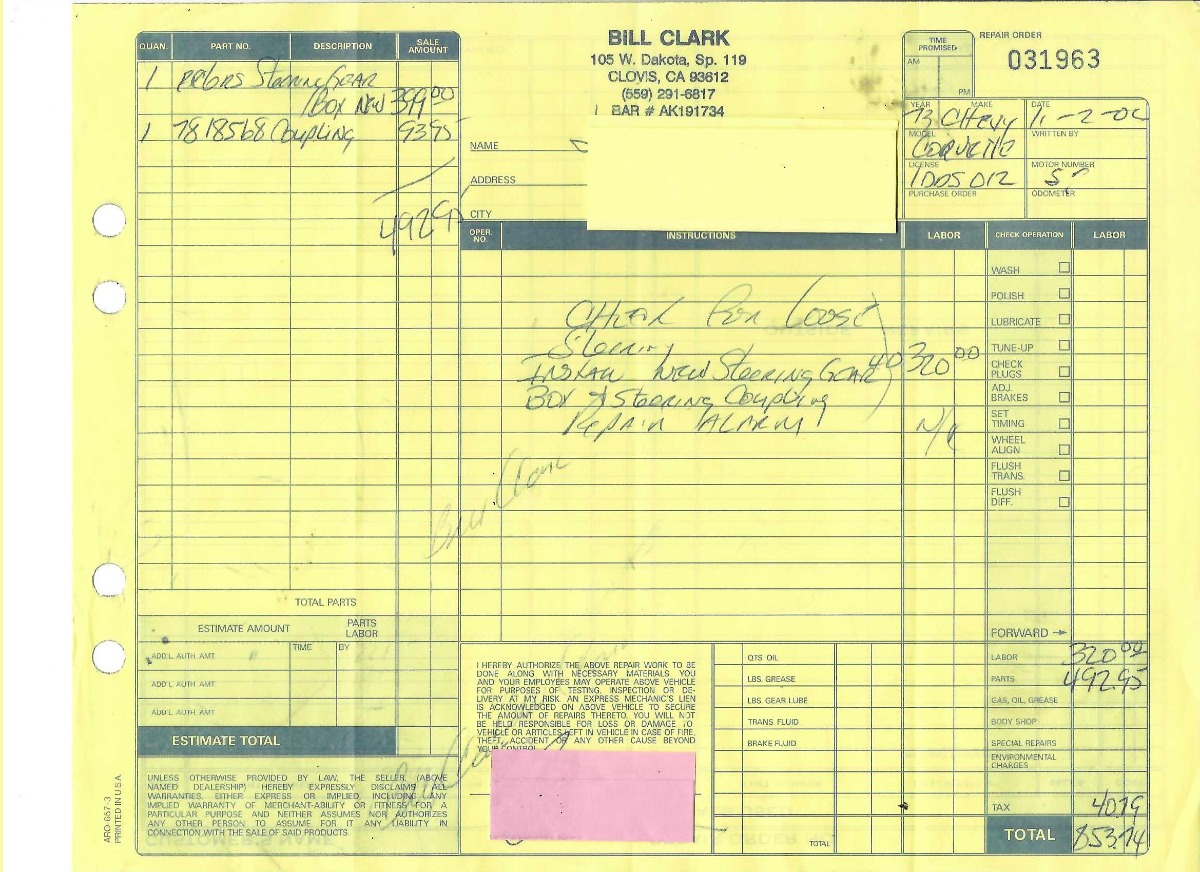 BILL CLARK
105 W. Dakota, Sp. 119
CLOVIS, CA 93612
(559) 291-6817
BAR # AK191734
TIME PROMISED
AM
PM
REPAIR ORDER
031963
QUAN. PART NO. DESCRIPTION SALE AMOUNT
1 Steering Gear
Box New 399.00
1 7818568 Coupling 93.95
492.95
NAME
ADDRESS
CITY
YEAR MAKE DATE
73 Chevy
MODEL WRITTEN BY
CORVETTE
LICENSE MOTOR NUMBER
1DDS012
PURCHASE ORDER ODOMETER
OPER. NO. INSTRUCTIONS LABOR CHECK OPERATION LABOR
Check For Loose
Steering
Install New Steering Gear 4.0 320.00
Box & Steering Coupling
Repair Alarm N/C
Bill Clark
WASH
POLISH
LUBRICATE
TUNE-UP
CHECK PLUGS
ADJ. BRAKES
SET TIMING
WHEEL ALIGN
FLUSH TRANS.
FLUSH DIFF.
TOTAL PARTS
ESTIMATE AMOUNT PARTS LABOR
ADD'L AUTH. AMT. TIME BY
ADD'L AUTH. AMT.
ADD'L AUTH. AMT.
ESTIMATE TOTAL
UNLESS OTHERWISE PROVIDED BY LAW, THE SELLER, (ABOVE
NAMED DEALERSHIP) HEREBY EXPRESSLY DISCLAIMS ALL
WARRANTIES, EITHER EXPRESS OR IMPLIED, INCLUDING ANY
IMPLIED WARRANTY OF MERCHANT-ABILITY OR FITNESS FOR A
PARTICULAR PURPOSE AND NEITHER ASSUMES NOR AUTHORIZES
ANY OTHER PERSON TO ASSUME FOR IT ANY LIABILITY IN
CONNECTION WITH THE SALE OF SAID PRODUCTS.
I HEREBY AUTHORIZE THE ABOVE REPAIR WORK TO BE
DONE ALONG WITH NECESSARY MATERIALS. YOU
AND YOUR EMPLOYEES MAY OPERATE ABOVE VEHICLE
FOR PURPOSES OF TESTING, INSPECTION OR DE-
LIVERY AT MY RISK. AN EXPRESS MECHANIC'S LIEN
IS ACKNOWLEDGED ON ABOVE VEHICLE TO SECURE
THE AMOUNT OF REPAIRS THERETO. YOU WILL NOT
BE HELD RESPONSIBLE FOR LOSS OR DAMAGE TO
VEHICLE OR ARTICLES LEFT IN VEHICLE IN CASE OF FIRE,
THEFT, ACCIDENT OR ANY OTHER CAUSE BEYOND
YOUR CONTROL.
QTS OIL
LBS. GREASE
LBS. GEAR LUBE
TRANS FLUID
BRAKE FLUID
TOTAL
FORWARD
LABOR 320.00
PARTS 492.95
GAS, OIL, GREASE
BODY SHOP
SPECIAL REPAIRS
ENVIRONMENTAL CHARGES
TAX 40.79
TOTAL 853.74
ARO-657-3
PRINTED IN U.S.A.